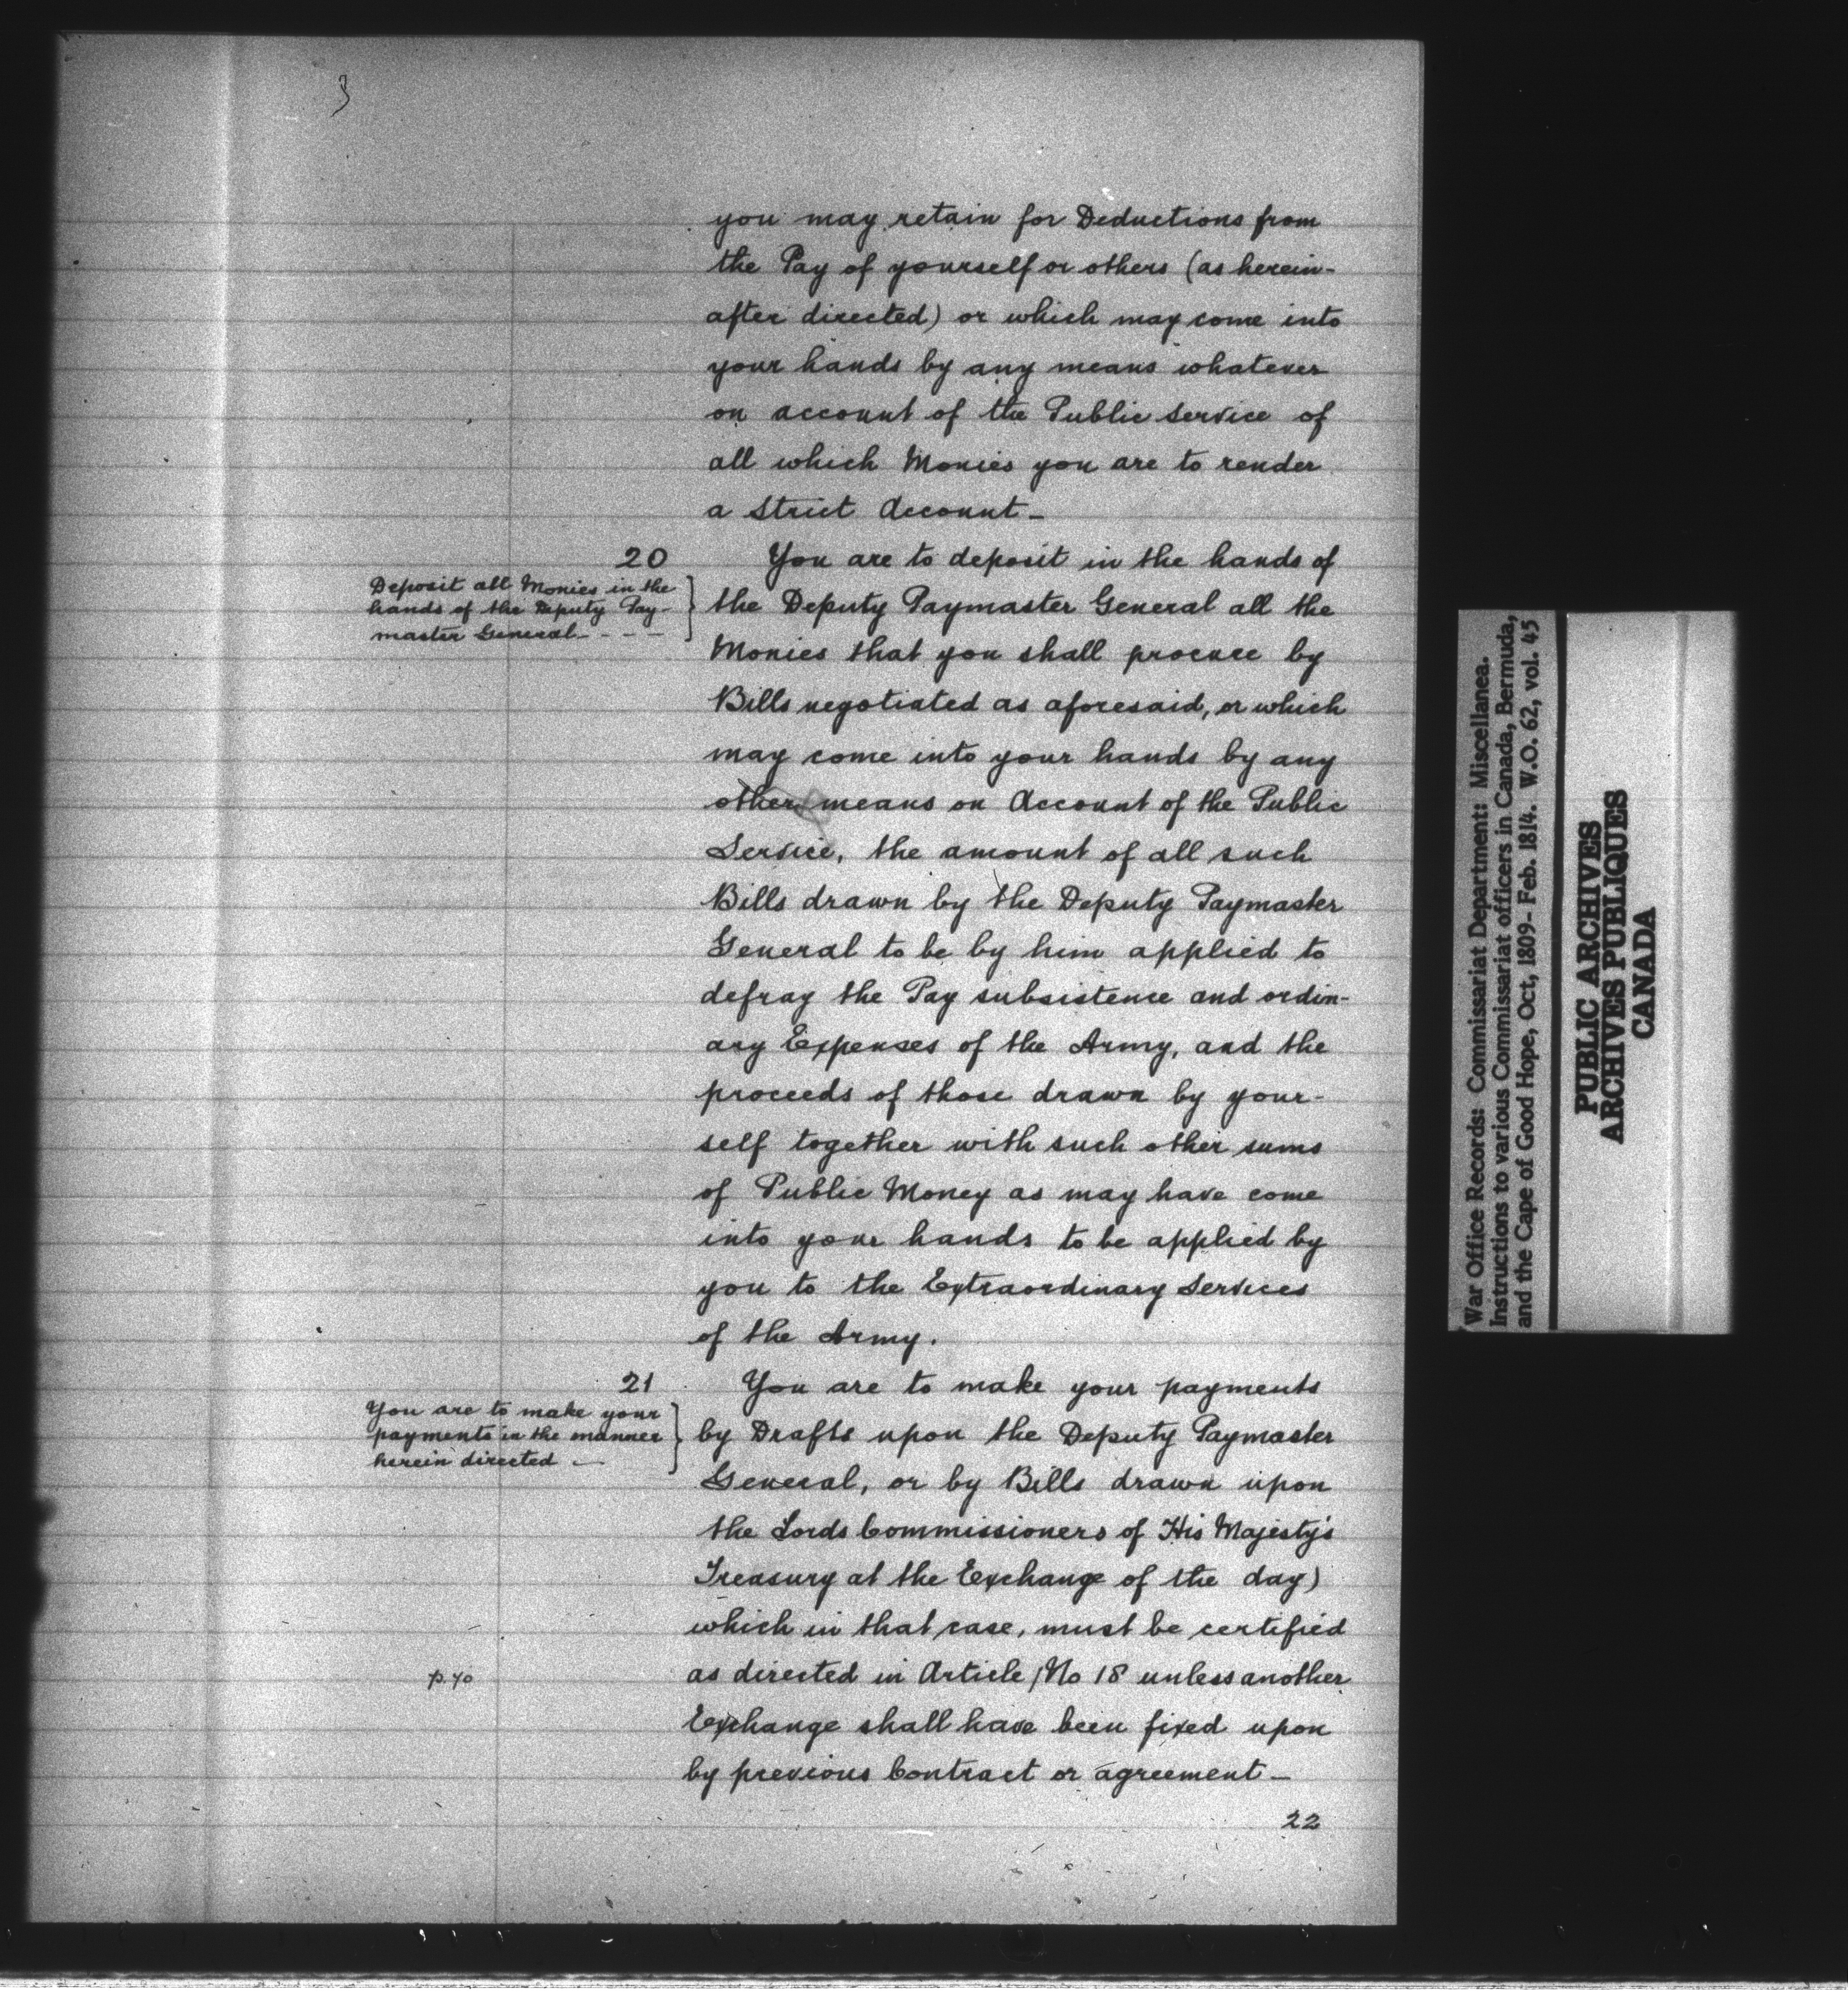 3
you may retain for Deductions from
the Pay of yourself or others (as herein-
after directed) or which may come into
your hands by any means whatever
on account of the Public Service of
all which Monies you are to render
a Strict Account_
20
Deposit all Monies in the
hands of the Deputy Pay-
master General_ - - -
You are to deposit in the hands of
the Deputy Paymaster General all the
Monies that you shall procure by
Bills negotiated as aforesaid, or which
may come into your hands by any
other means on Account of the Public
Service, the amount of all such
Bills drawn by the Deputy Paymaster
General to be by him applied to
defray the Pay subsistence and ordin-
ary Expenses of the Army, and the
proceeds of those drawn by your-
self together with such other sums
of Public Money as may have come
into your hands to be applied by
you to the Extraordinary Services
of the Army.
21
You are to make your
payments in the manner
herein directed _
You are to make your payments
by Drafts upon the Deputy Paymaster
General, or by Bills drawn upon
the Lords Commissioners of His Majesty's
Treasury at the Exchange of the day)
which in that case, must be certified
p. 40
as directed in Article /No 18 unless another
Exchange shall have been fixed upon
by previous Contract or agreement_
22
War Office Records: Commissariat Department: Miscellanea.
Instructions to various Commissariat officers in Canada, Bermuda,
and the Cape of Good Hope, Oct, 1809- Feb. 1814. W.O. 62, vol. 45
PUBLIC ARCHIVES
ARCHIVES PUBLIQUES
CANADA